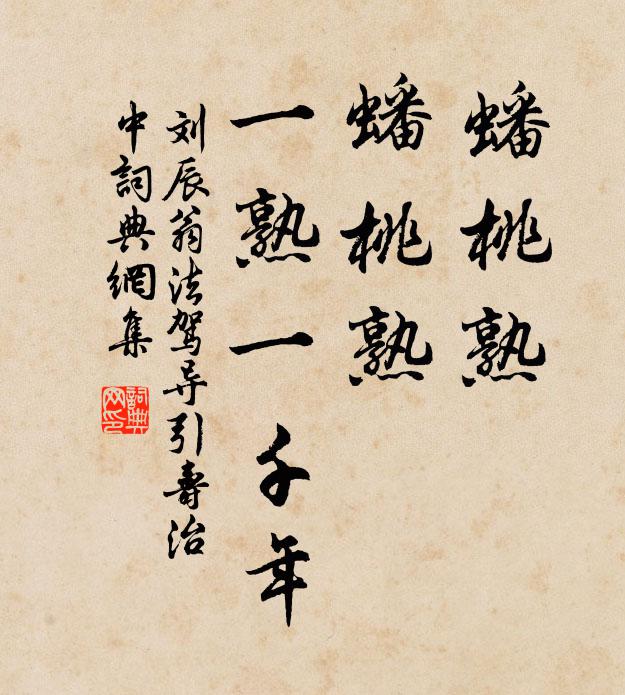 蟠桃熟
蟠桃熟
一熟一千年
刘辰翁法驾导引壽治
中詞典網集
詞典网印